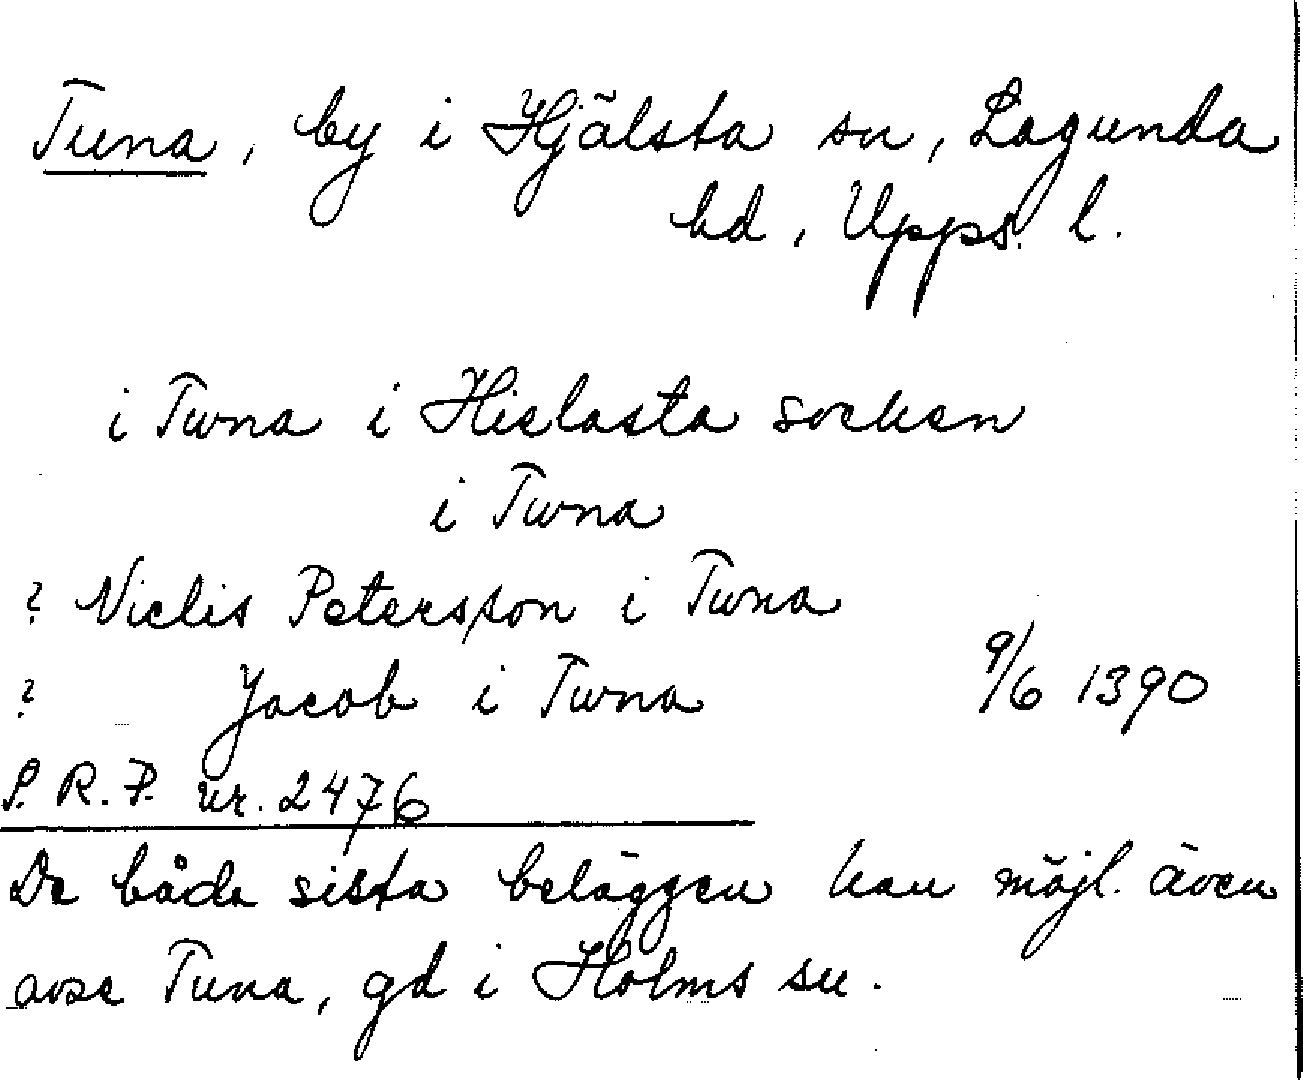 Tuna, by i Hjälsta sn, Lagunda
hd, Upps. l.
i Twna i Hielasta socken
i Twna
? Niclis Petersson i Twna
? Jacob i Twna 9/6 1390
S.R.P. nr. 2476
De båda sista beläggen kan möjl. även
avse Tuna, gd i Holms sn.